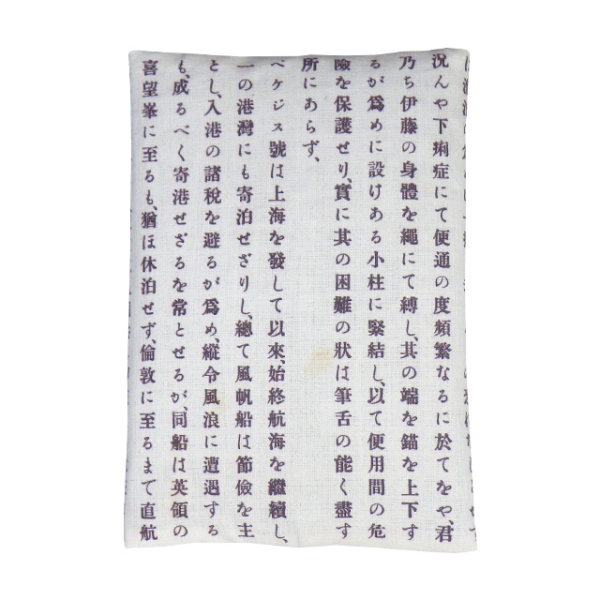 況んや下痢症にて便通の度頻繁なるに於てをや、君
乃ち伊藤の身體を繩にて縛し、其の端を錨を上下す
るが爲めに設けある小柱に緊結し、以て便用間の危
險を保護せり、實に其の困難の狀は筆舌の能く盡す
所にあらず、
ペケジス號は上海を發して以來、始終航海を繼續し、
一の港灣にも寄泊せざりし、總て風帆船は節儉を主
とし、入港の諸稅を避るが爲め、縱令風浪に遭遇する
も、成るべく寄港せざるを常とせるが、同船は英領の
喜望峯に至るも、猶ほ休泊せず、倫敦に至るまて直航